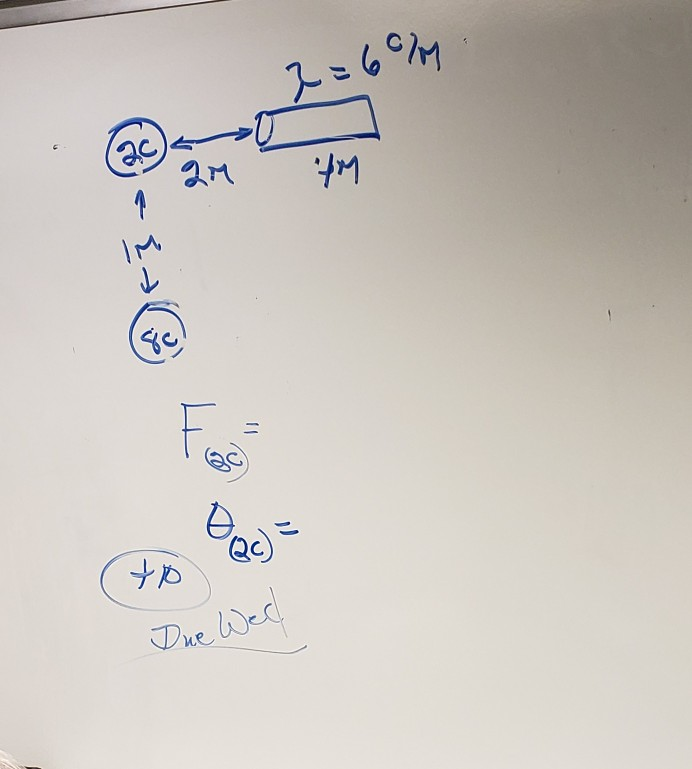 λ = 6 C/M
2C
2M
1M
8C
F(2C) =
θ(2C) =
+10
Due Wed